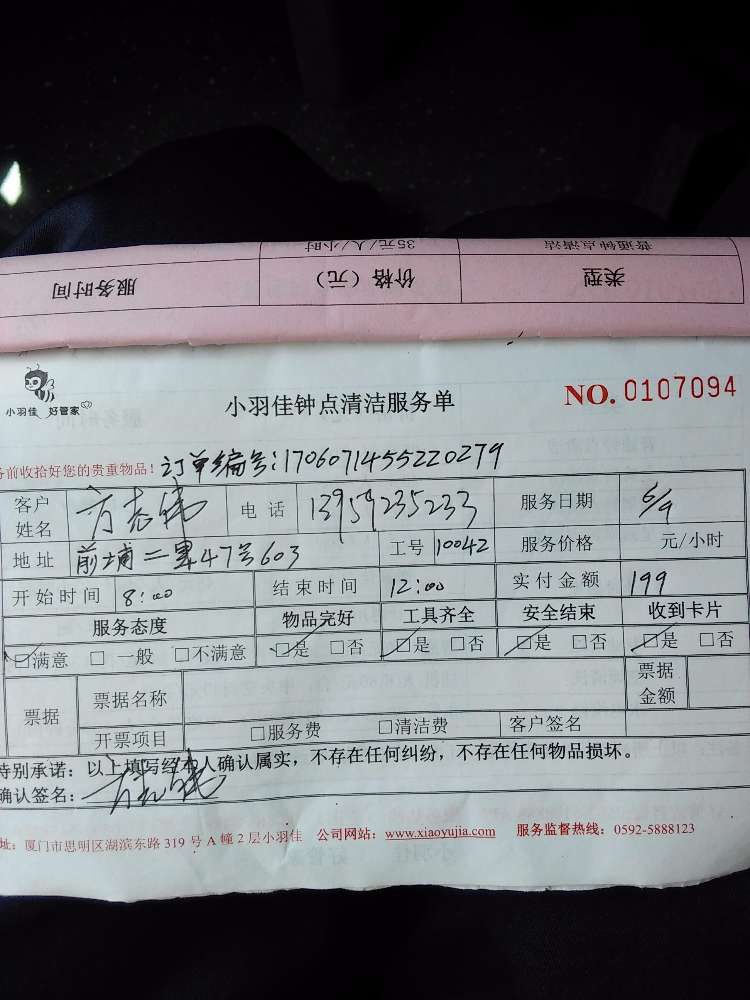 普通钟点清洁 35元/人/小时
类型 价格（元） 服务时间
小羽佳 好管家
小羽佳钟点清洁服务单
NO. 0107094
务前收拾好您的贵重物品！订单编号:1706071455220279
客户姓名 方志伟 电话 13959235233 服务日期 6/9
地址 前埔二里47号603 工号 10042 服务价格 元/小时
开始时间 8:00 结束时间 12:00 实付金额 199
服务态度 物品完好 工具齐全 安全结束 收到卡片
☑满意 □一般 □不满意 ☑是 □否 ☑是 □否 ☑是 □否 ☑是 □否
票据 票据名称 票据金额
开票项目 □服务费 □清洁费 客户签名
特别承诺：以上填写经本人确认属实，不存在任何纠纷，不存在任何物品损坏。
确认签名：方志伟
址：厦门市思明区湖滨东路 319 号 A 幢 2 层小羽佳 公司网站：www.xiaoyujia.com 服务监督热线：0592-5888123